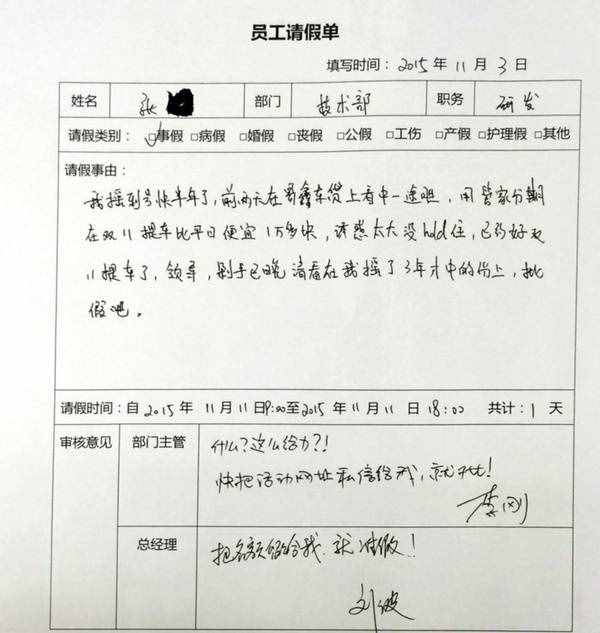 员工请假单
填写时间：2015年11月3日
姓名 张 部门 技术部 职务 研发
请假类别：□事假 □病假 □婚假 □丧假 □公假 □工伤 □产假 □护理假 □其他
请假事由：
我摇到号快半年了，前两天在易鑫车贷上看中一途观，用管家分期
在双11提车比平日便宜1万多块，诱惑太大没hold住，已约好双
11提车了，领导，剁手已晚请看在我摇了3年才中的份上，批
假吧。
请假时间：自2015年11月11日9:00至2015年11月11日18:00 共计：1天
审核意见 部门主管 什么？这么给力？！
快把活动网址私信给我，就批！
李刚
总经理 把名额留给我，就准假！
刘波